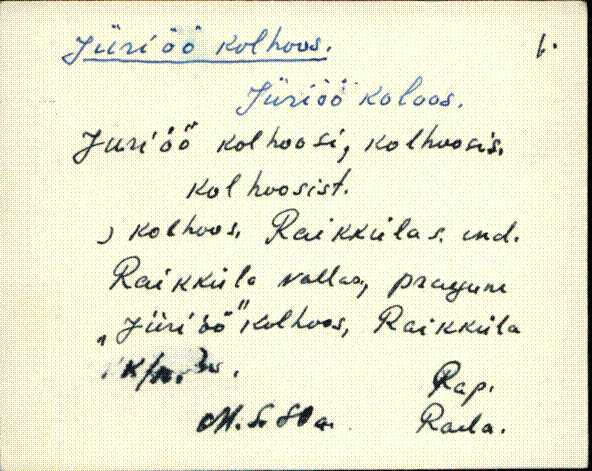 Jüriöö kolhoos. 1.
Jüriöö koloos.
Jüriöö kolhoosi, kolhoosis.
kolhoosist.
) kolhoos. Raikkülas. end.
Raikküla vallas, praegune
"Jüriöö" kolhoos, Raikküla
K/n.
Rap.
M. S.